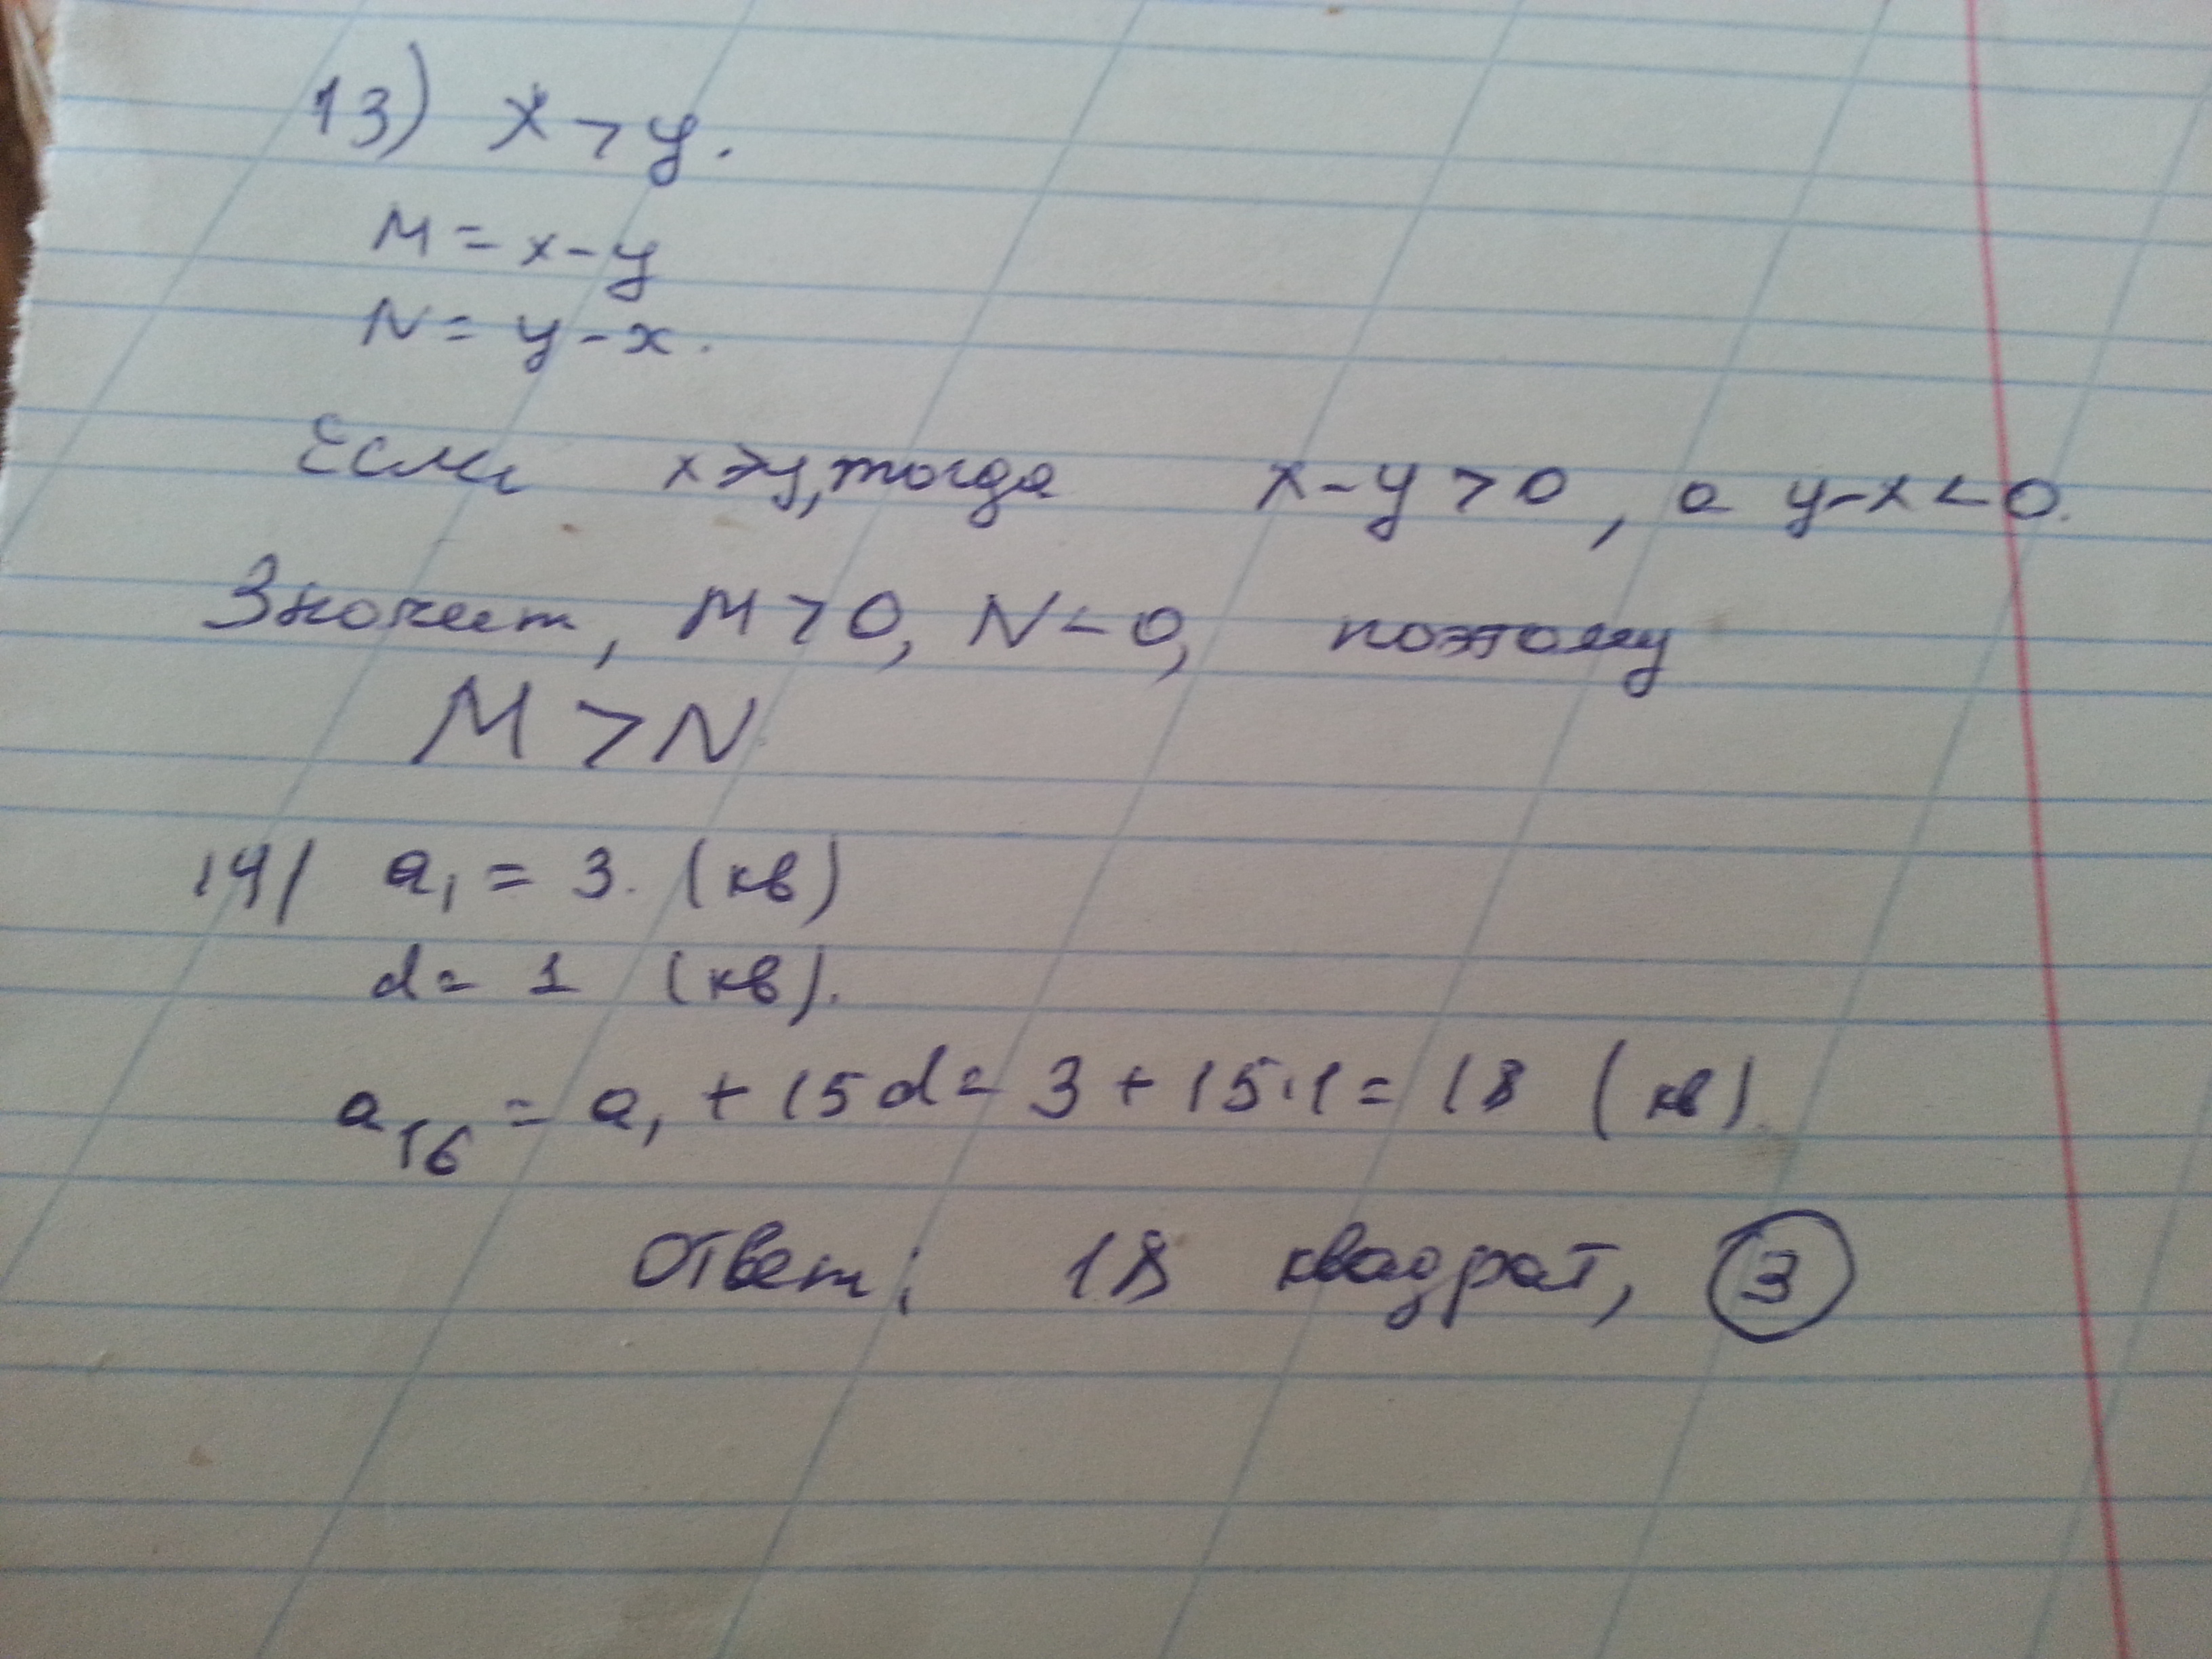 13) x > y.
M = x - y
N = y - x.
Если x > y, тогда x - y > 0, а y - x < 0.
Значит, M > 0, N < 0, поэтому
M > N
14) a₁ = 3. (кв)
d = 1 (кв).
a₁₆ = a₁ + 15d = 3 + 15·1 = 18 (кв).
Ответ: 18 квадрат, 3